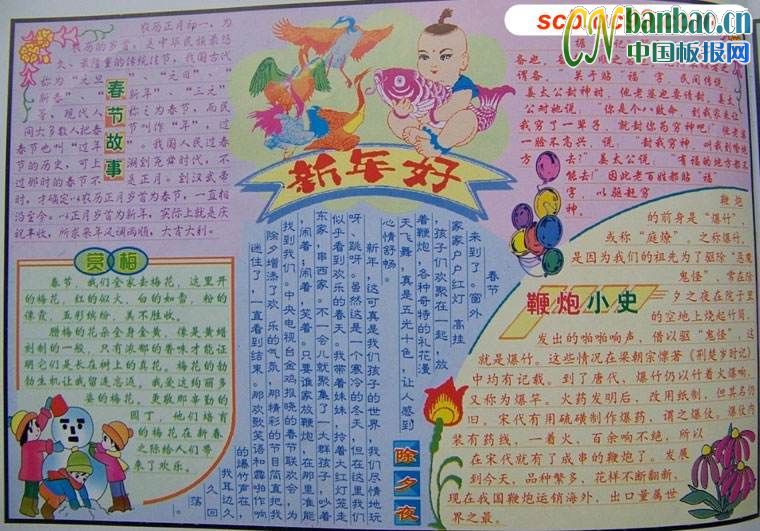 CNbanbao.cn
中国板报网
春节故事
农历正月初一，为
农历的岁首，是中华民族最悠
久、最隆重的传统佳节，我国古代
称为“元旦”、“元日”、
“新春”、“新年”、“三元”
等，现代人称之为春节，而民
间大多数人把春节叫作“年”，过
春节也叫“过年”。我国人民过春
节的历史，可上溯到尧舜时代，不
过那时的春节不是正月。到汉武帝
时，才确定以农历正月岁首为春节，一直相
沿至今。以正月岁首为新年，实际上就是庆
祝丰收，所求来年风调雨顺，大吉大利。
新年好
备也，
谓备，关于贴“福”字，民间传说，
姜太公封神时，他老婆也要请封，姜太
公对她说，“你是个八败命，到我家来让
我穷了一辈子，就封你为穷神吧”他老婆
一脸不高兴，说：“封我穷神，叫我到哪块
方去？”姜太公说，“有福的地方都不
能去！”因此老百姓都贴“福”
字，以驱赶穷
神。
赏梅
春节，我们全家去梅花，这里开
的梅花，红的似火，白的如雪，粉的
像霞，五彩缤纷，美不胜收。
腊梅的花朵全身金黄，像是黄蜡
刻制的一般，只有浓郁的香味才能证
明它们是长在树上的真花。梅花的勃
勃生机让我留连忘返，我爱这绚丽多
姿的梅花，更敬那辛勤的
园丁，他们培育
的梅花在新春
之际给人们带
来了欢乐。
除夕夜
春节
来到了。窗外
家家户户红灯高挂
，孩子们欢聚在一起，放
着鞭炮，各种奇特的礼花漫
天飞舞，真是五光十色，让人感到
心情舒畅。
新年，这可真是我们孩子的世界，我们尽情地玩
呀、跳呀。虽然这是一个寒冷的冬天，但在这里我们
似乎看到欢乐的春天。我带着妹妹，拎着大红灯笼走
东家，串西家。不一会儿就聚集了一大群孩子，吵着
，闹着；闹着，笑着。只要谁家放鞭炮，在那里准能
找到我们。中央电视台金鸡报晓的春节联欢会，为
除夕增添了欢乐的气氛，那精彩的节目简直把我
迷住了，一直看到结束。那欢歌笑语和霹啪作响
的爆竹声在
我耳边久
久回
荡。
鞭炮小史
鞭炮
的前身是“爆竹”，
或称“庭燎”。之称爆竹，
是因为我们的祖先为了驱除“恶魔
鬼怪”，常在除
夕之夜在院子里
的空地上烧起竹筒，
发出的啪啪响声，借以驱“鬼怪”，这
就是爆竹。这些情况在梁朝宗懔著《荆楚岁时记》
中均有记载。到了唐代，爆竹仍以竹着火爆响，
又称为爆竿。火药发明后，改用纸制，但其名仍
旧。宋代有用硫磺制作爆药，谓之爆仗。爆仗内
装有药线，一着火，百余响不绝，所以
在宋代就有了成串的鞭炮了。发展
到今天，品种繁多，花样不断翻新，
现在我国鞭炮运销海外，出口量属世
界之最。